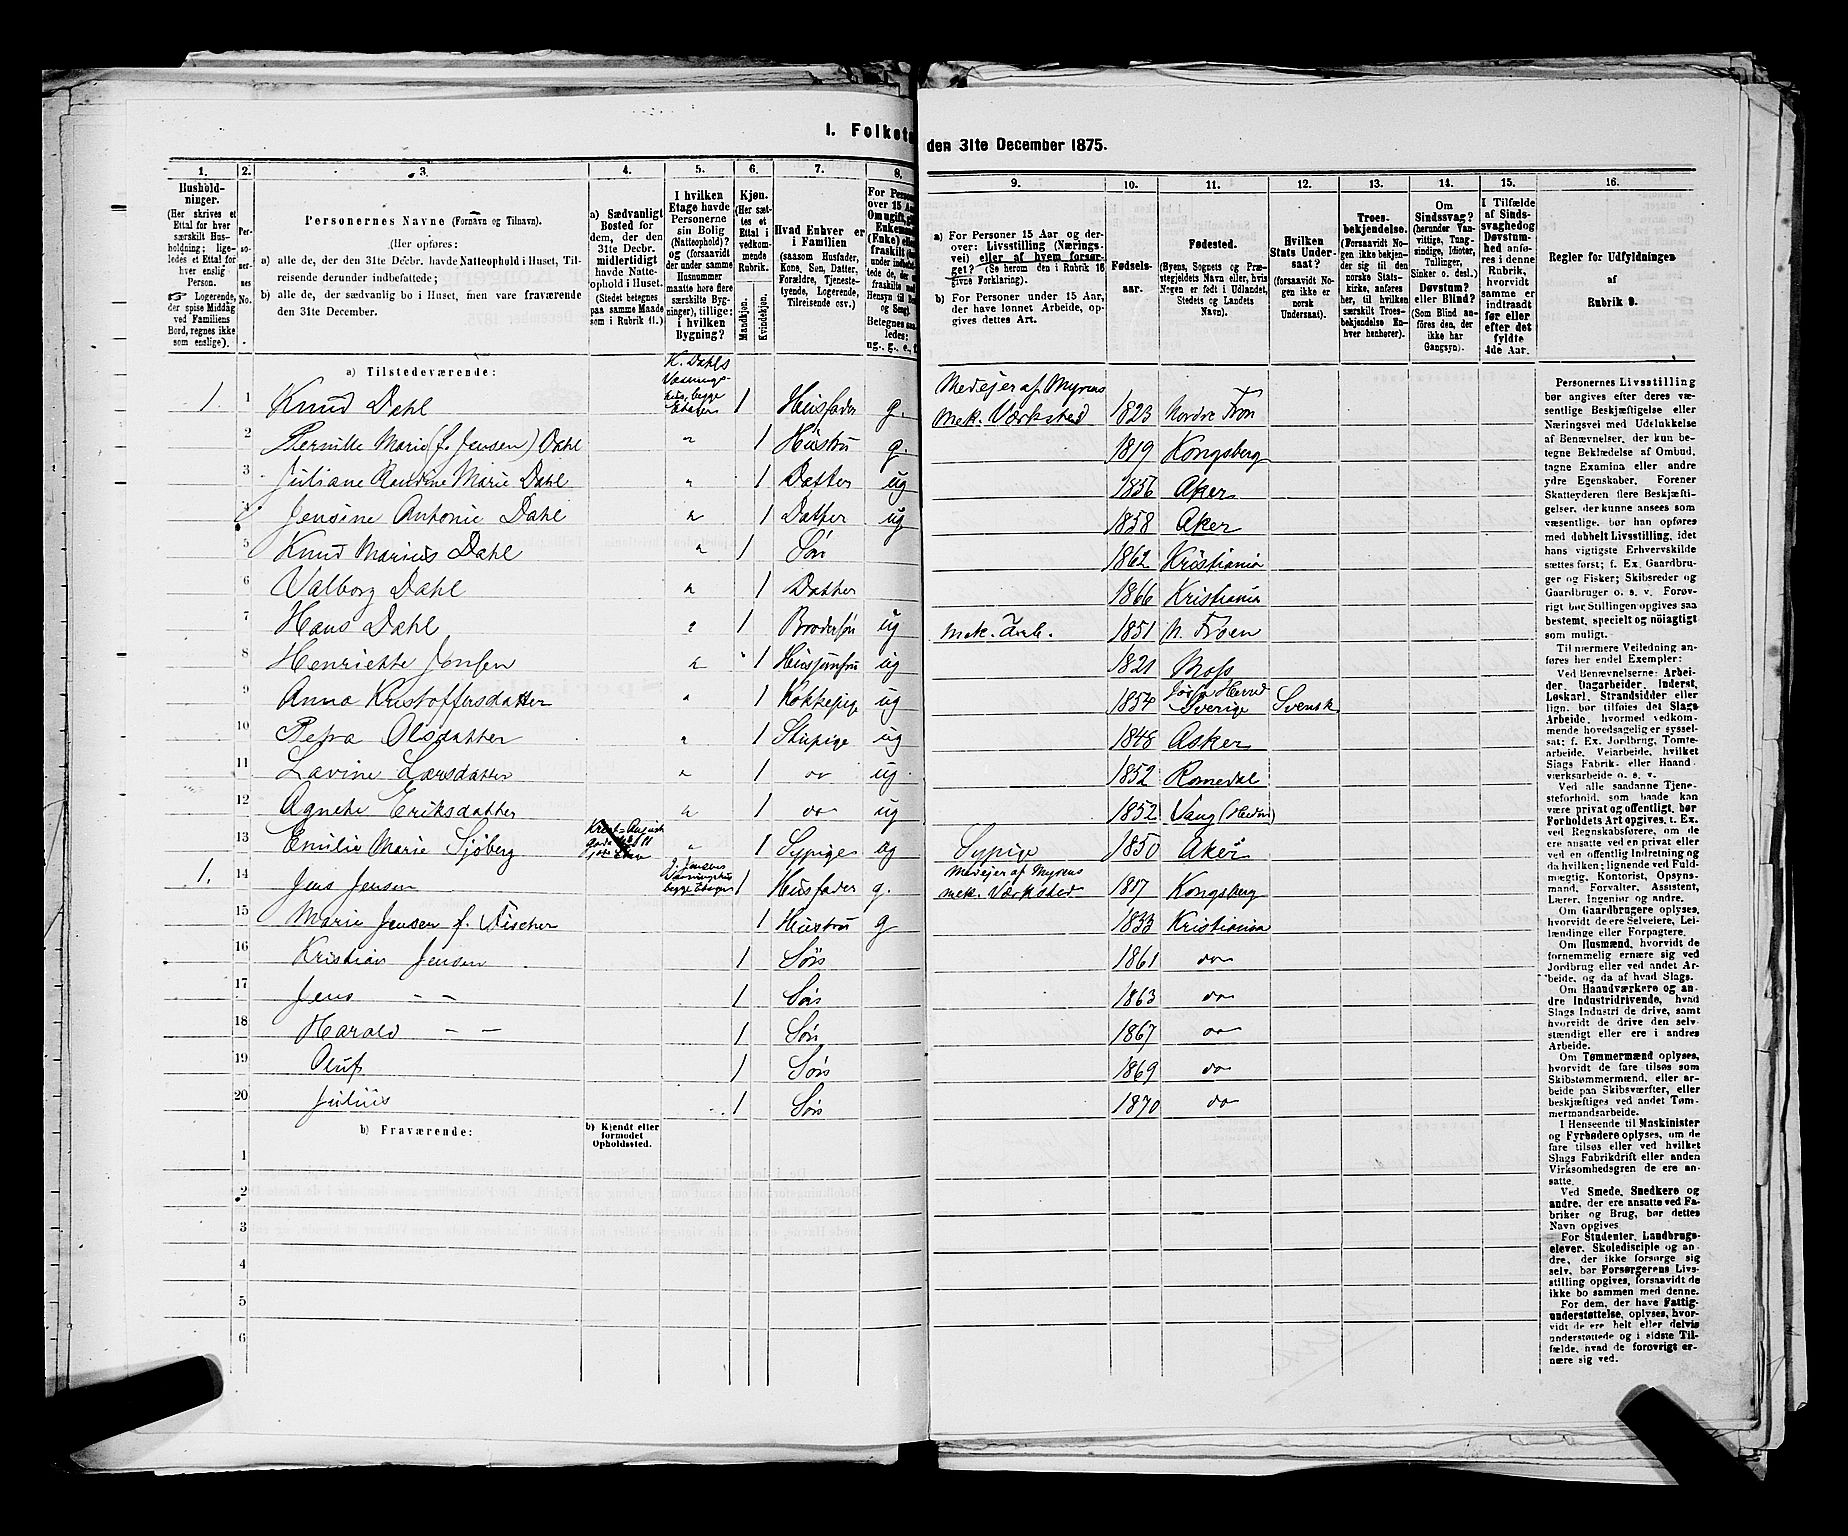 I. Folket
den 31te December 1875.
1. 2. 3. 4. 5. 6. 7. 8.
9. 10. 11. 12. 13. 14. 15. 16.
Hushold-
ninger.
(Her skrives et
Ettal for hver
særskilt Hus-
holdning; lige-
ledes et Ettal for
hver enslig
Person.
☞ Logerende,
der spise Middag
ved Familiens
Bord, regnes ikke
som enslige).
Per-
so-
ner-
nes
No.
Personernes Navne (Fornavn og Tilnavn).
(Her opføres:
a) alle de, der den 31te Decbr. havde Natteophold i Huset, Til-
reisende derunder indbefattede;
b) alle de, der sædvanlig bo i Huset, men vare fraværende
den 31te December.
a) Sædvanligt
Bosted for
dem, der den
31te Decbr.
midlertidigt
havde Natte-
ophold i Huset.
(Stedet betegnes
paa samme Maade
som i Rubrik 11.)
I hvilken
Etage havde
Personerne
sin Bolig
(Natteophold)?
og (forsaavidt
der under samme
Husnummer
maatte høre flere
særskilte Byg-
ninger), tillige:
i hvilken
Bygning?
Kjøn.
(Her sæt-
tes et
Ettal i
vedkom-
mende
Rubrik.)
Mandkjøn.
Kvindekjøn.
Hvad Enhver er
i Familien
(saasom Husfader,
Kone, Søn, Datter,
Forældre, Tjeneste-
tyende, Logerende,
Tilreisende osv.)
a) For Personer 15 Aar og der-
over: Livsstilling (Nærings-
vei) eller af hvem forsør-
get? (Se herom den i Rubrik 16
givne Forklaring).
b) For Personer under 15 Aar,
der have lønnet Arbeide, op-
gives dettes Art.
Fødsels-
aar.
Fødested.
(Byens, Sognets og Præ-
stegjeldets Navn eller, hvis
Nogen er født i Udlandet,
Stedets og Landets
Navn).
Hvilken
Stats Under-
saat?
(forsaavidt No-
gen ikke er
norsk
Undersaat).
Troes-
bekjendelse.
(Forsaavidt No-
gen ikke bekjen-
der sig til den
norske Stats-
kirke, anføres
her, til hvilken
særskilt Troes-
bekjendelse En-
hver henhører).
Om
Sindssvag?
(herunder Van-
vittige, Tung-
sindige, Idioter,
Tullinger,
Sinker o. desl.)
Døvstum?
eller Blind?
(Som Blind an-
føres den, der
ikke har
Gangsyn).
I Tilfælde
af Sinds-
svaghed og
Døvstum-
hed anfø-
res i denne
Rubrik,
hvorvidt
samme er
indtraadt
før eller
efter det
fyldte
4de Aar.
Regler for Udfyldningen
af
Rubrik 9.
a) Tilstedeværende:
1. 1 Knud Dahl H. Dahls begge Etager 1 Husfader g. Medejer af Myrens mek. Værksted 1823 Nordre Fron
2 Pernille Marie (f. Jensen) Dahl " 1 Hustru g. 1819 Kongsberg
3 Juliane Marie Dahl " 1 Datter ug 1856 Aker
4 Jensine Antonie Dahl " 1 Datter ug 1858 Aker
5 Knud Marius Dahl " 1 Søn 1862 Kristiania
6 Valborg Dahl " 1 Datter 1866 Kristiania
7 Hans Dahl " 1 Brodersøn ug mek. Arb. 1851 N. Froen
8 Henriette Jonsen " 1 Husjomfru ug 1821 Moss
9 Anna Kristoffersdatter " 1 Kokkepige ug 1854 Sverige Svensk
10 Petra Olsdatter " 1 Stupige ug 1848 Asker
11 Lavine Larsdatter " 1 do ug 1852 Romedal
12 Agnete Eriksdatter " 1 do ug 1852 Vang (Hedm)
13 Emilie Marie Sjøberg " 1 Sypige ug Sypige 1850 Aker
1. 14 Jens Jensen J. Jensens begge Etager 1 Husfader g. Medejer af Myrens mek. Værksted 1817 Kongsberg
15 Marie Jensen f. Fischer 1 Hustru g 1833 Kristiania
16 Kristian Jensen 1 Søn 1861 do
17 Jens — — 1 Søn 1863 do
18 Harald — — 1 Søn 1867 do
19 Oluf 1 Søn 1869 do
20 Julius 1 Søn 1870 do
b) Fraværende:
b) Kjendt eller
formodet
Opholdssted.
1
2
3
4
5
6
Personernes Livsstilling
bør angives efter deres væ-
sentlige Beskjæftigelse eller
Næringsvei med Udelukkelse
af Benævnelser, der kun be-
tegne Beklædelse af Ombud,
tagne Examina eller andre
ydre Egenskaber. Forener
Skatteyderen flere Beskjæfti-
gelser, der kunne ansees som
væsentlige, bør han opføres
med dobbelt Livsstilling, idet
hans vigtigste Erhvervskilde
sættes først; f. Ex. Gaardbru-
ger og Fisker; Skibsreder og
Gaardbruger o. s. v. Forøv-
rigt bør Stillingen opgives saa
bestemt, specielt og nøiagtigt
som muligt.
Til nærmere Veiledning an-
føres her endel Exempler:
Ved Benævnelserne: Arbei-
der, Dagarbeider, Inderst,
Løskarl, Strandsidder eller
lign. bør tilføies det Slags
Arbeide, hvormed vedkom-
mende hovedsagelig er syssel-
sat; f. Ex. Jordbrug, Tomte-
arbeide, Veiarbeide, hvilket
Slags Fabrik- eller Haand-
værksarbeide o. s. v.
Ved alle saadanne Tjene-
steforhold, som baade kan
være privat og offentligt, bør
Forholdets Art opgives, t. Ex.
ved Regnskabsførere, om de
ere ansatte ved en privat eller
ved en offentlig Indretning og
da hvilken; lignende ved Fuld-
mægtig, Kontorist, Opsyns-
mand, Forvalter, Assistent,
Lærer, Ingeniør og andre.
Om Gaardbrugere oplyses,
hvorvidt de ere Selveiere, Lei-
lændinge eller Forpagtere.
Om Husmænd, hvorvidt de
fornemmelig ernære sig ved
Jordbrug eller ved andet Ar-
beide, og da af hvad Slags.
Om Haandværkere og an-
dre Industridrivende, hvad
Slags Industri de drive, samt
hvorvidt de drive den selv-
stændigt eller ere i andres
Arbeide.
Om Tømmermænd oplyses,
hvorvidt de fare tilsøs som
Skibstømmermænd, eller ar-
beide paa Skibsværfter, eller
beskjæftiges ved andet Tøm-
mermandsarbeide.
I Henseende til Maskinister
og Fyrbødere oplyses, om de
fare tilsøs eller ved hvilket
Slags Fabrikdrift eller anden
Virksomhedsgren de ere an-
satte.
Ved Smede, Snedkere og
andre, der ere ansatte ved Fa-
briker og Brug, bør dettes
Navn opgives.
For Studenter, Landbrugs-
elever, Skoledisciple og an-
dre, der ikke forsørge sig
selv, bør Forsørgerens Livs-
stilling opgives, forsaavidt de
ikke bo sammen med denne.
For dem, der have Fattig-
understøttelse, oplyses, hvor-
vidt de ere helt eller delvis
understøttede og i sidste Til-
fælde, hvad de forøvrigt er-
nære sig ved.